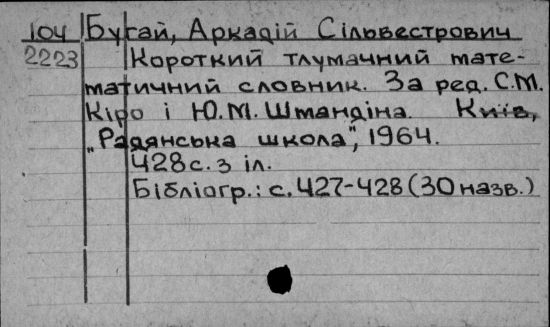 104 Бугай, Аркадій Сільвестрович
2223 Короткий тлумачний мате-
матичний словник. За ред. С.М.
Кіро і Ю.М. Штандіна. Київ,
„Радянська школа", 1964.
428с. з іл.
Бібліогр.: с. 427-428 (30 назв.)